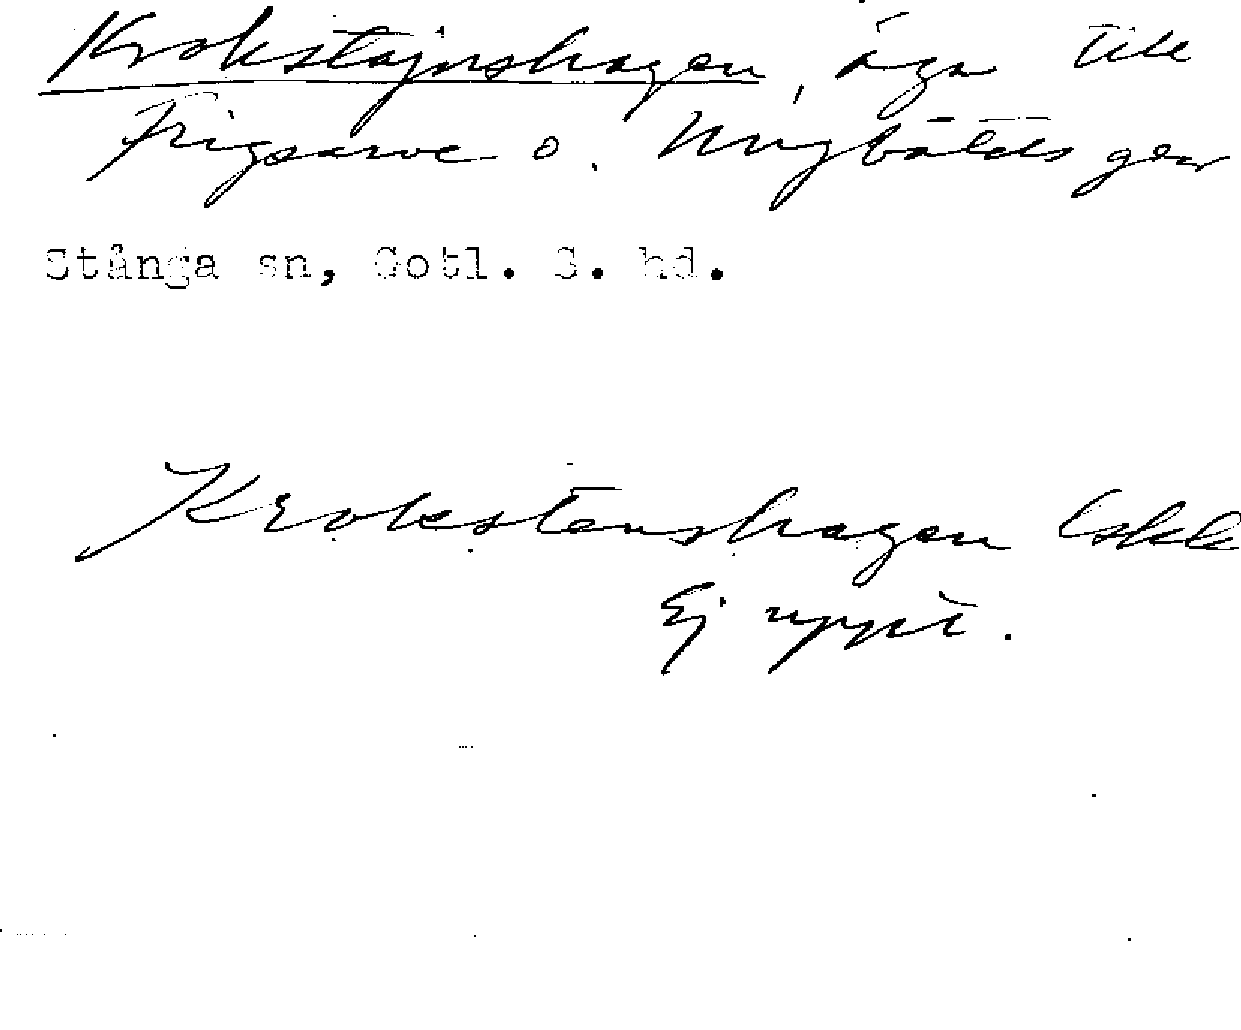 Krokstajnshagen, äga till
Frigsarve o. Mygbålds går
Stånga sn, Gotl. S. hd.
Krokstenshagen Eskk
Ej uppt.